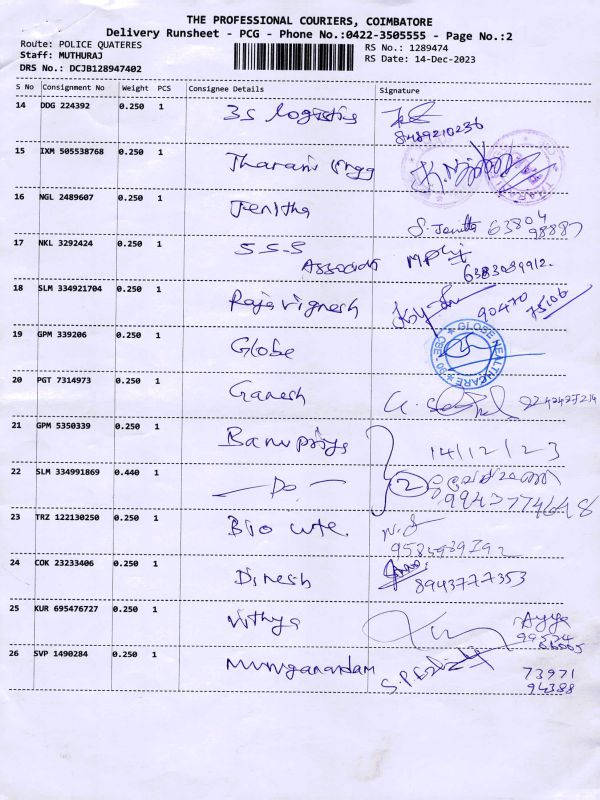 THE PROFESSIONAL COURIERS, COIMBATORE
Delivery Runsheet - PCG - Phone No.:0422-3505555 - Page No.:2
Route: POLICE QUATERES
RS No.: 1289474
Staff: MUTHURAJ
RS Date: 14-Dec-2023
DRS No.: DCJB128947402
S No Consignment No Weight PCS Consignee Details Signature
14 DDG 224392 0.250 1 3S Logistis
8489210236
15 IXM 505538768 0.250 1 Tharani
16 NGL 2489607 0.250 1 Jenitha
S. Jenitta 63804
98887
17 NKL 3292424 0.250 1 S.S.S
Associats
6383039912.
18 SLM 334921704 0.250 1 Raja Vignesh
90470
75106
19 GPM 339206 0.250 1 Globe
GLOBE HEALTHCARE
20 PGT 7314973 0.250 1 Ganesh
21 GPM 5350339 0.250 1 Banupriya 14/12/23
22 SLM 334991869 0.440 1 — Do — 2
9943774648
23 TRZ 122130250 0.250 1 Bio
24 COK 23233406 0.250 1 Dinesh
8943777353
25 KUR 695476727 0.250 1 Vithya
26 SVP 1490284 0.250 1 Muruganandam
73971
94388